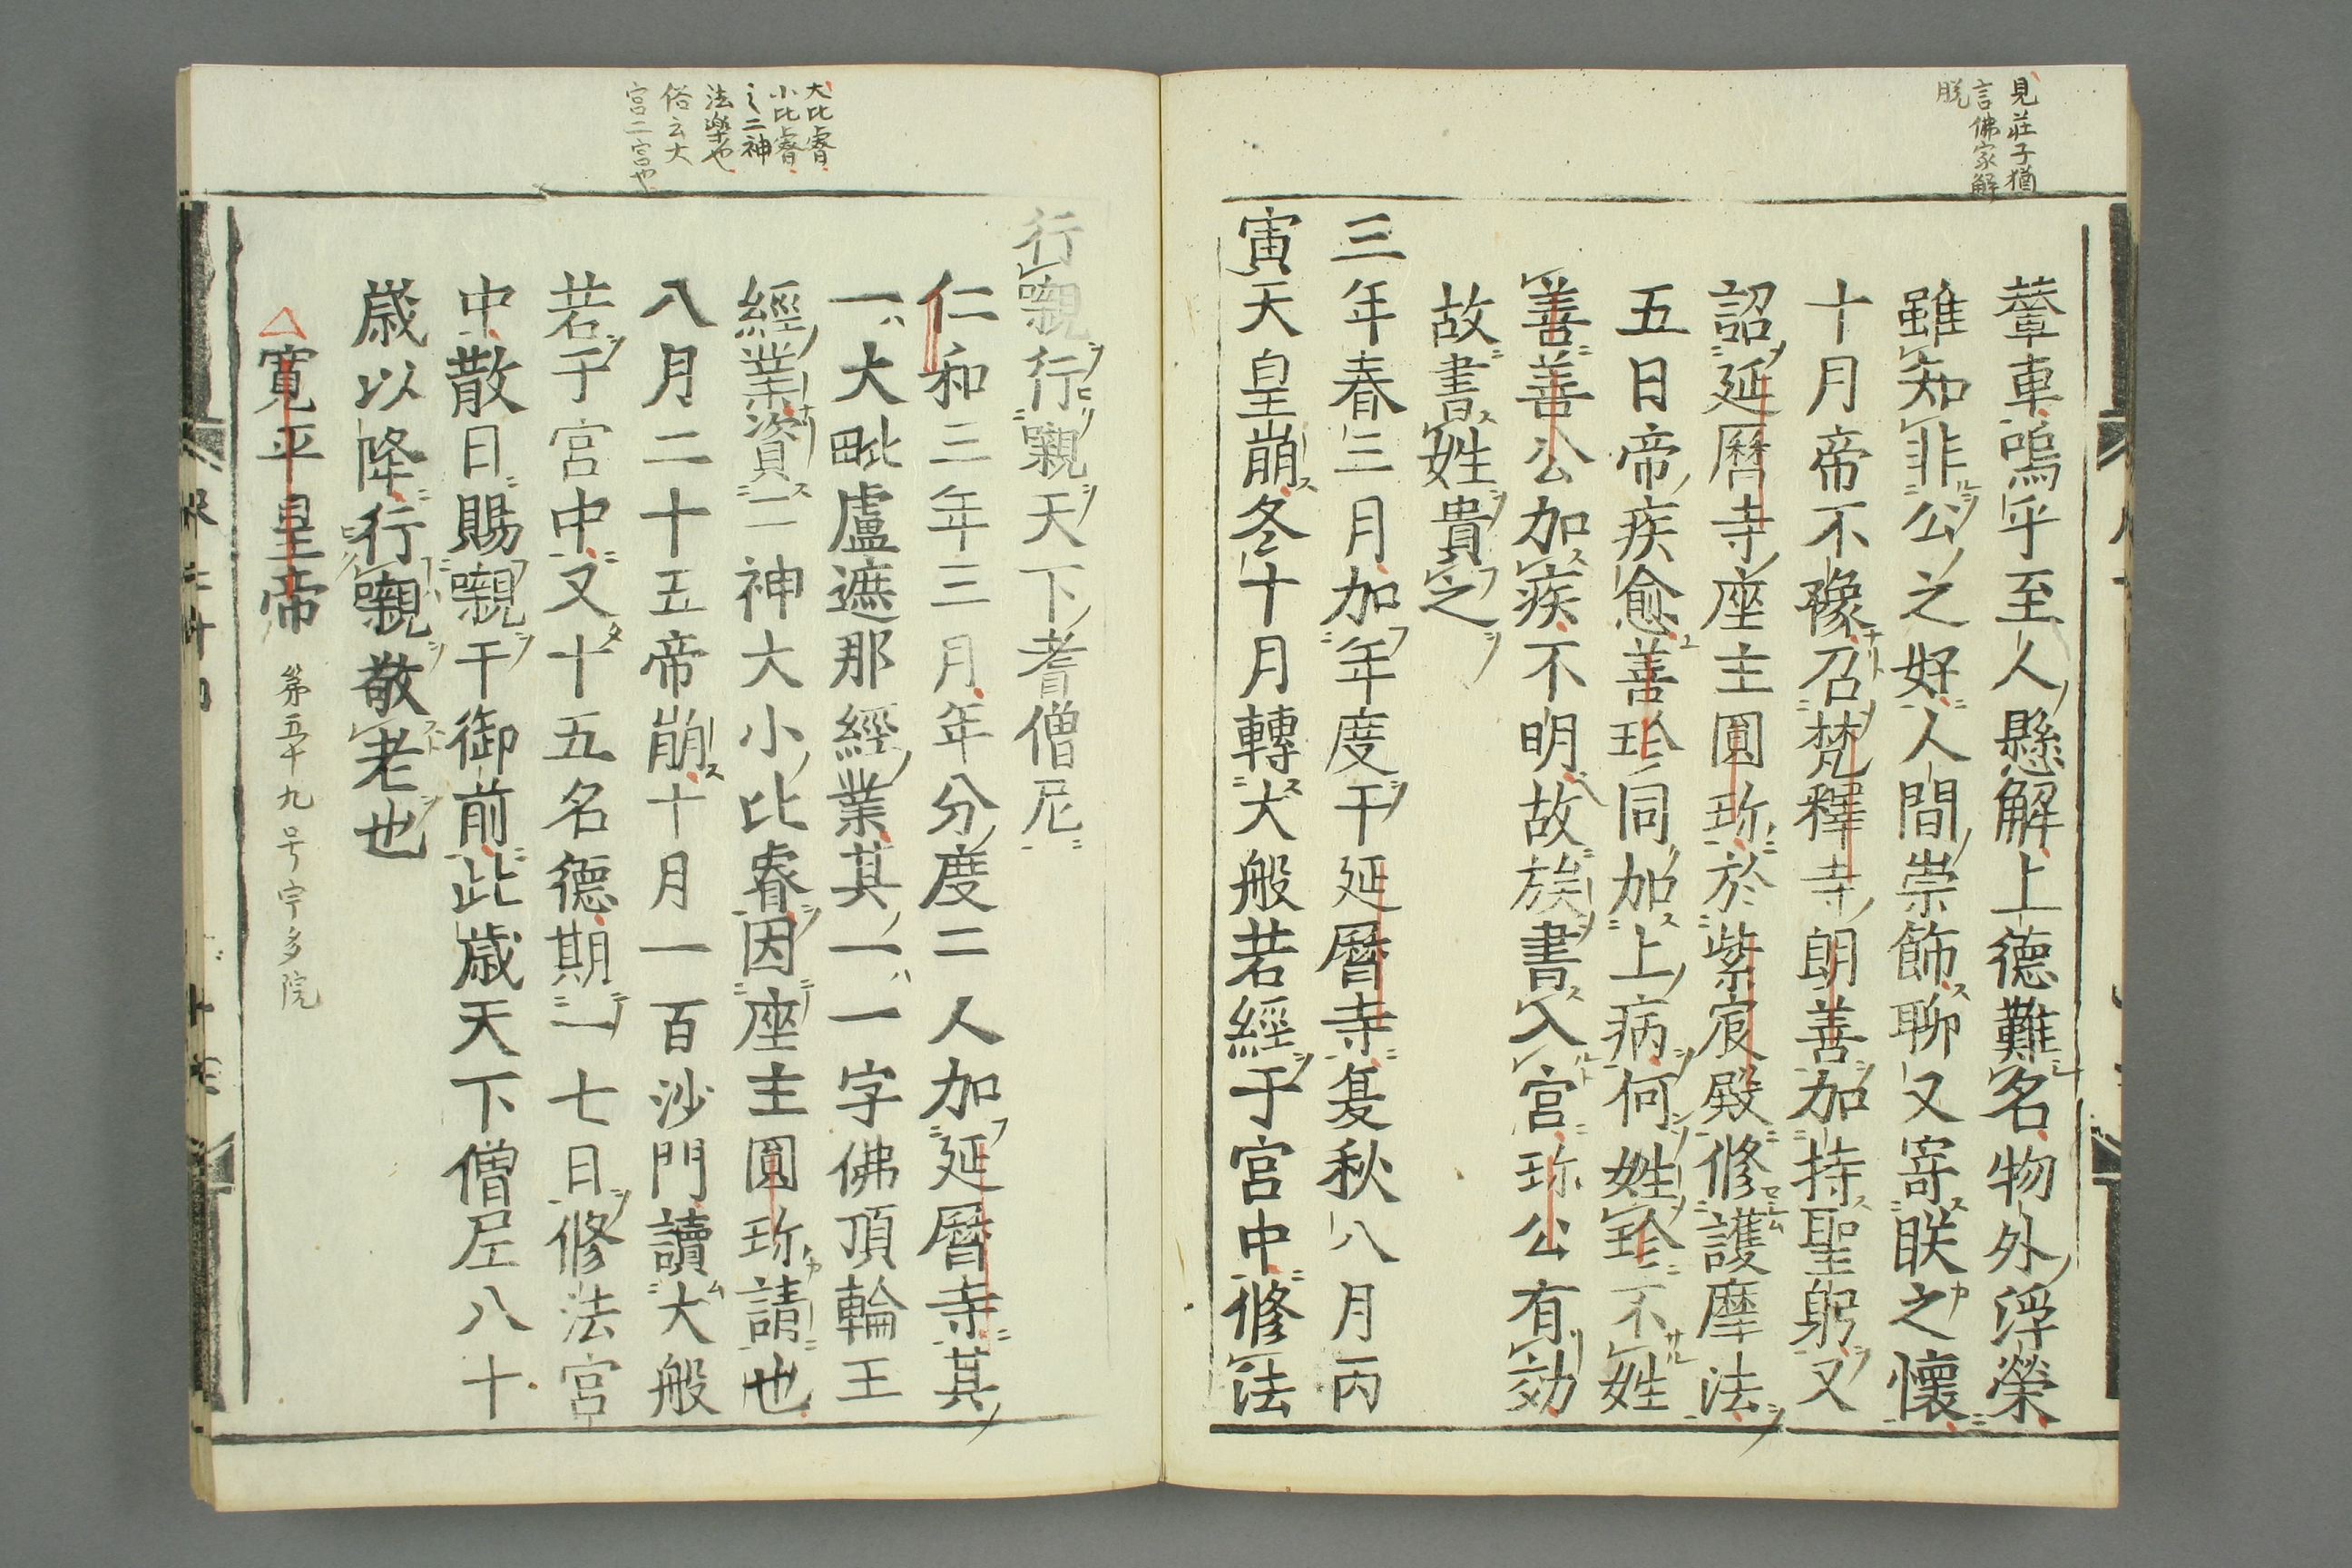 見莊子猶
言佛家解
脱
輦車嗚乎至人懸解上德難名物外浮榮
雖知非公之好人間崇飾聊又寄朕之懷
十月帝不豫召梵釋寺朗善加持聖躬又
詔延曆寺座主圓珎於紫宸殿修護摩法
五日帝疾愈善珍同加上病何姓珍不姓
善善公加疾不明故族書入宮珎公有効
故書姓貴之
三年春三月加年度于延曆寺夏秋八月丙
寅天皇崩冬十月轉大般若經于宮中修法
大比睿
小比睿
之二神
法樂也
俗云大
宮二宮也
行嚫行嚫天下耆僧尼
仁和三年三月年分度二人加延曆寺其
一大毗盧遮那經業其一一字佛頂輪王
經業資二神大小比睿因座主圓珎請也
八月二十五帝崩十月一百沙門讀大般
若于宮中又十五名德期一七日修法宮
中散日賜嚫于御前此歲天下僧尼八十
歲以降行嚫敬老也
寬平皇帝 第五十九号宇多院